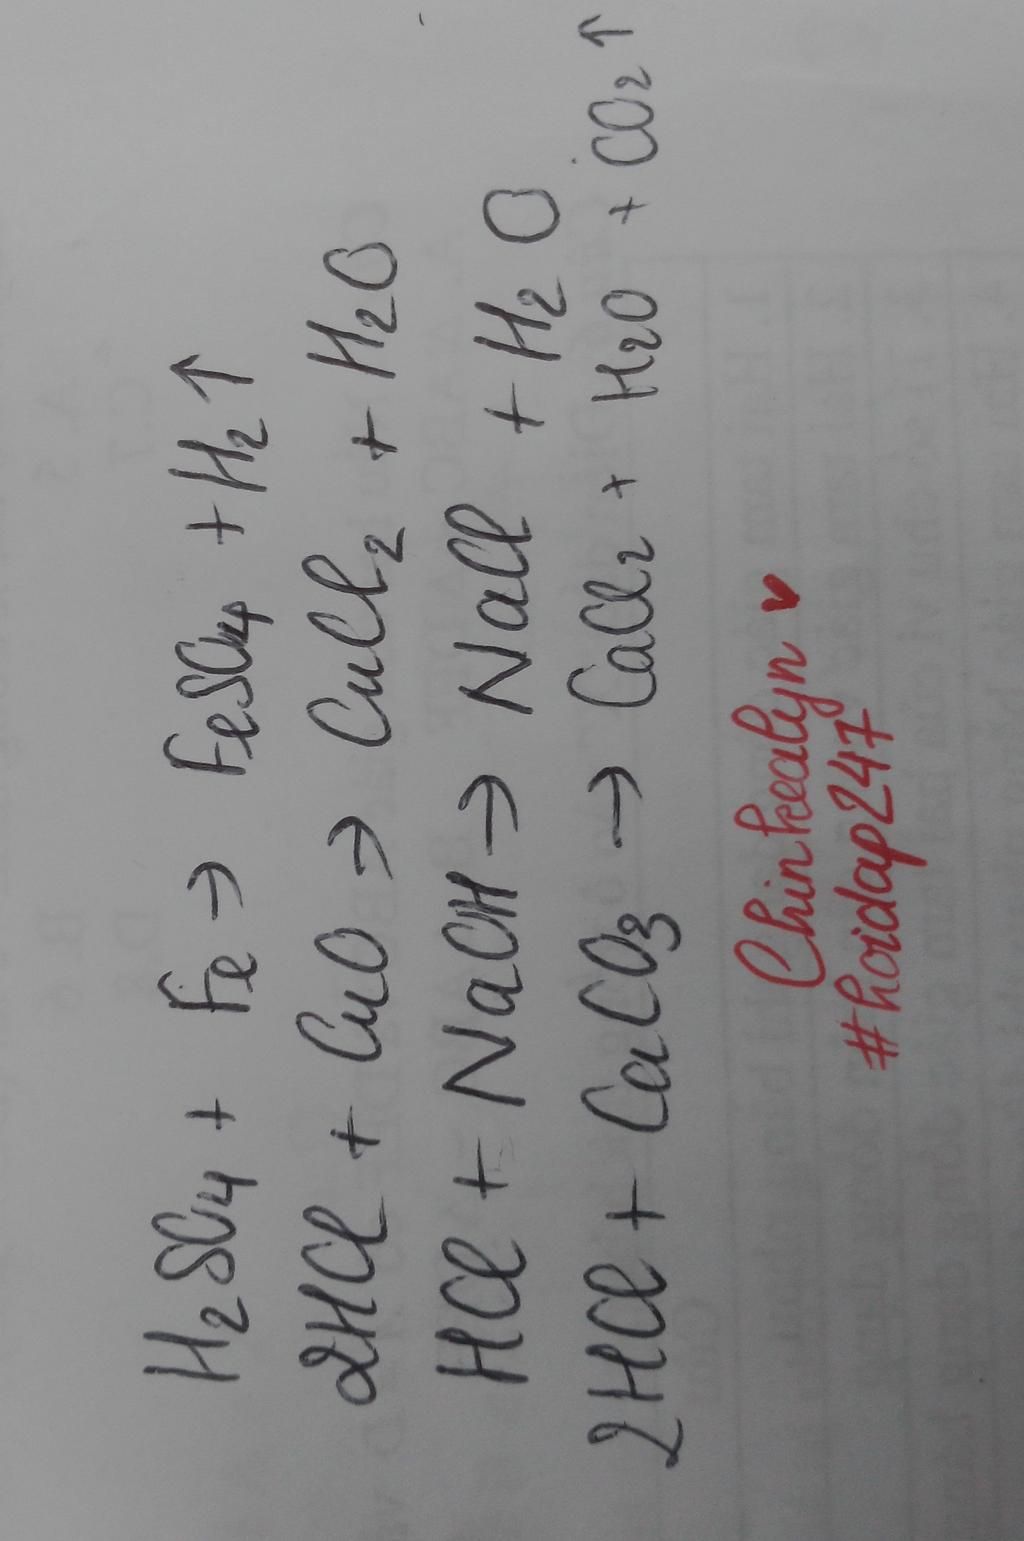 H₂SO₄ + Fe → FeSO₄ + H₂↑
2HCl + CuO → CuCl₂ + H₂O
HCl + NaOH → NaCl + H₂O
2HCl + CaCO₃ → CaCl₂ + H₂O + CO₂↑
Chinkealyn
#hoidap247